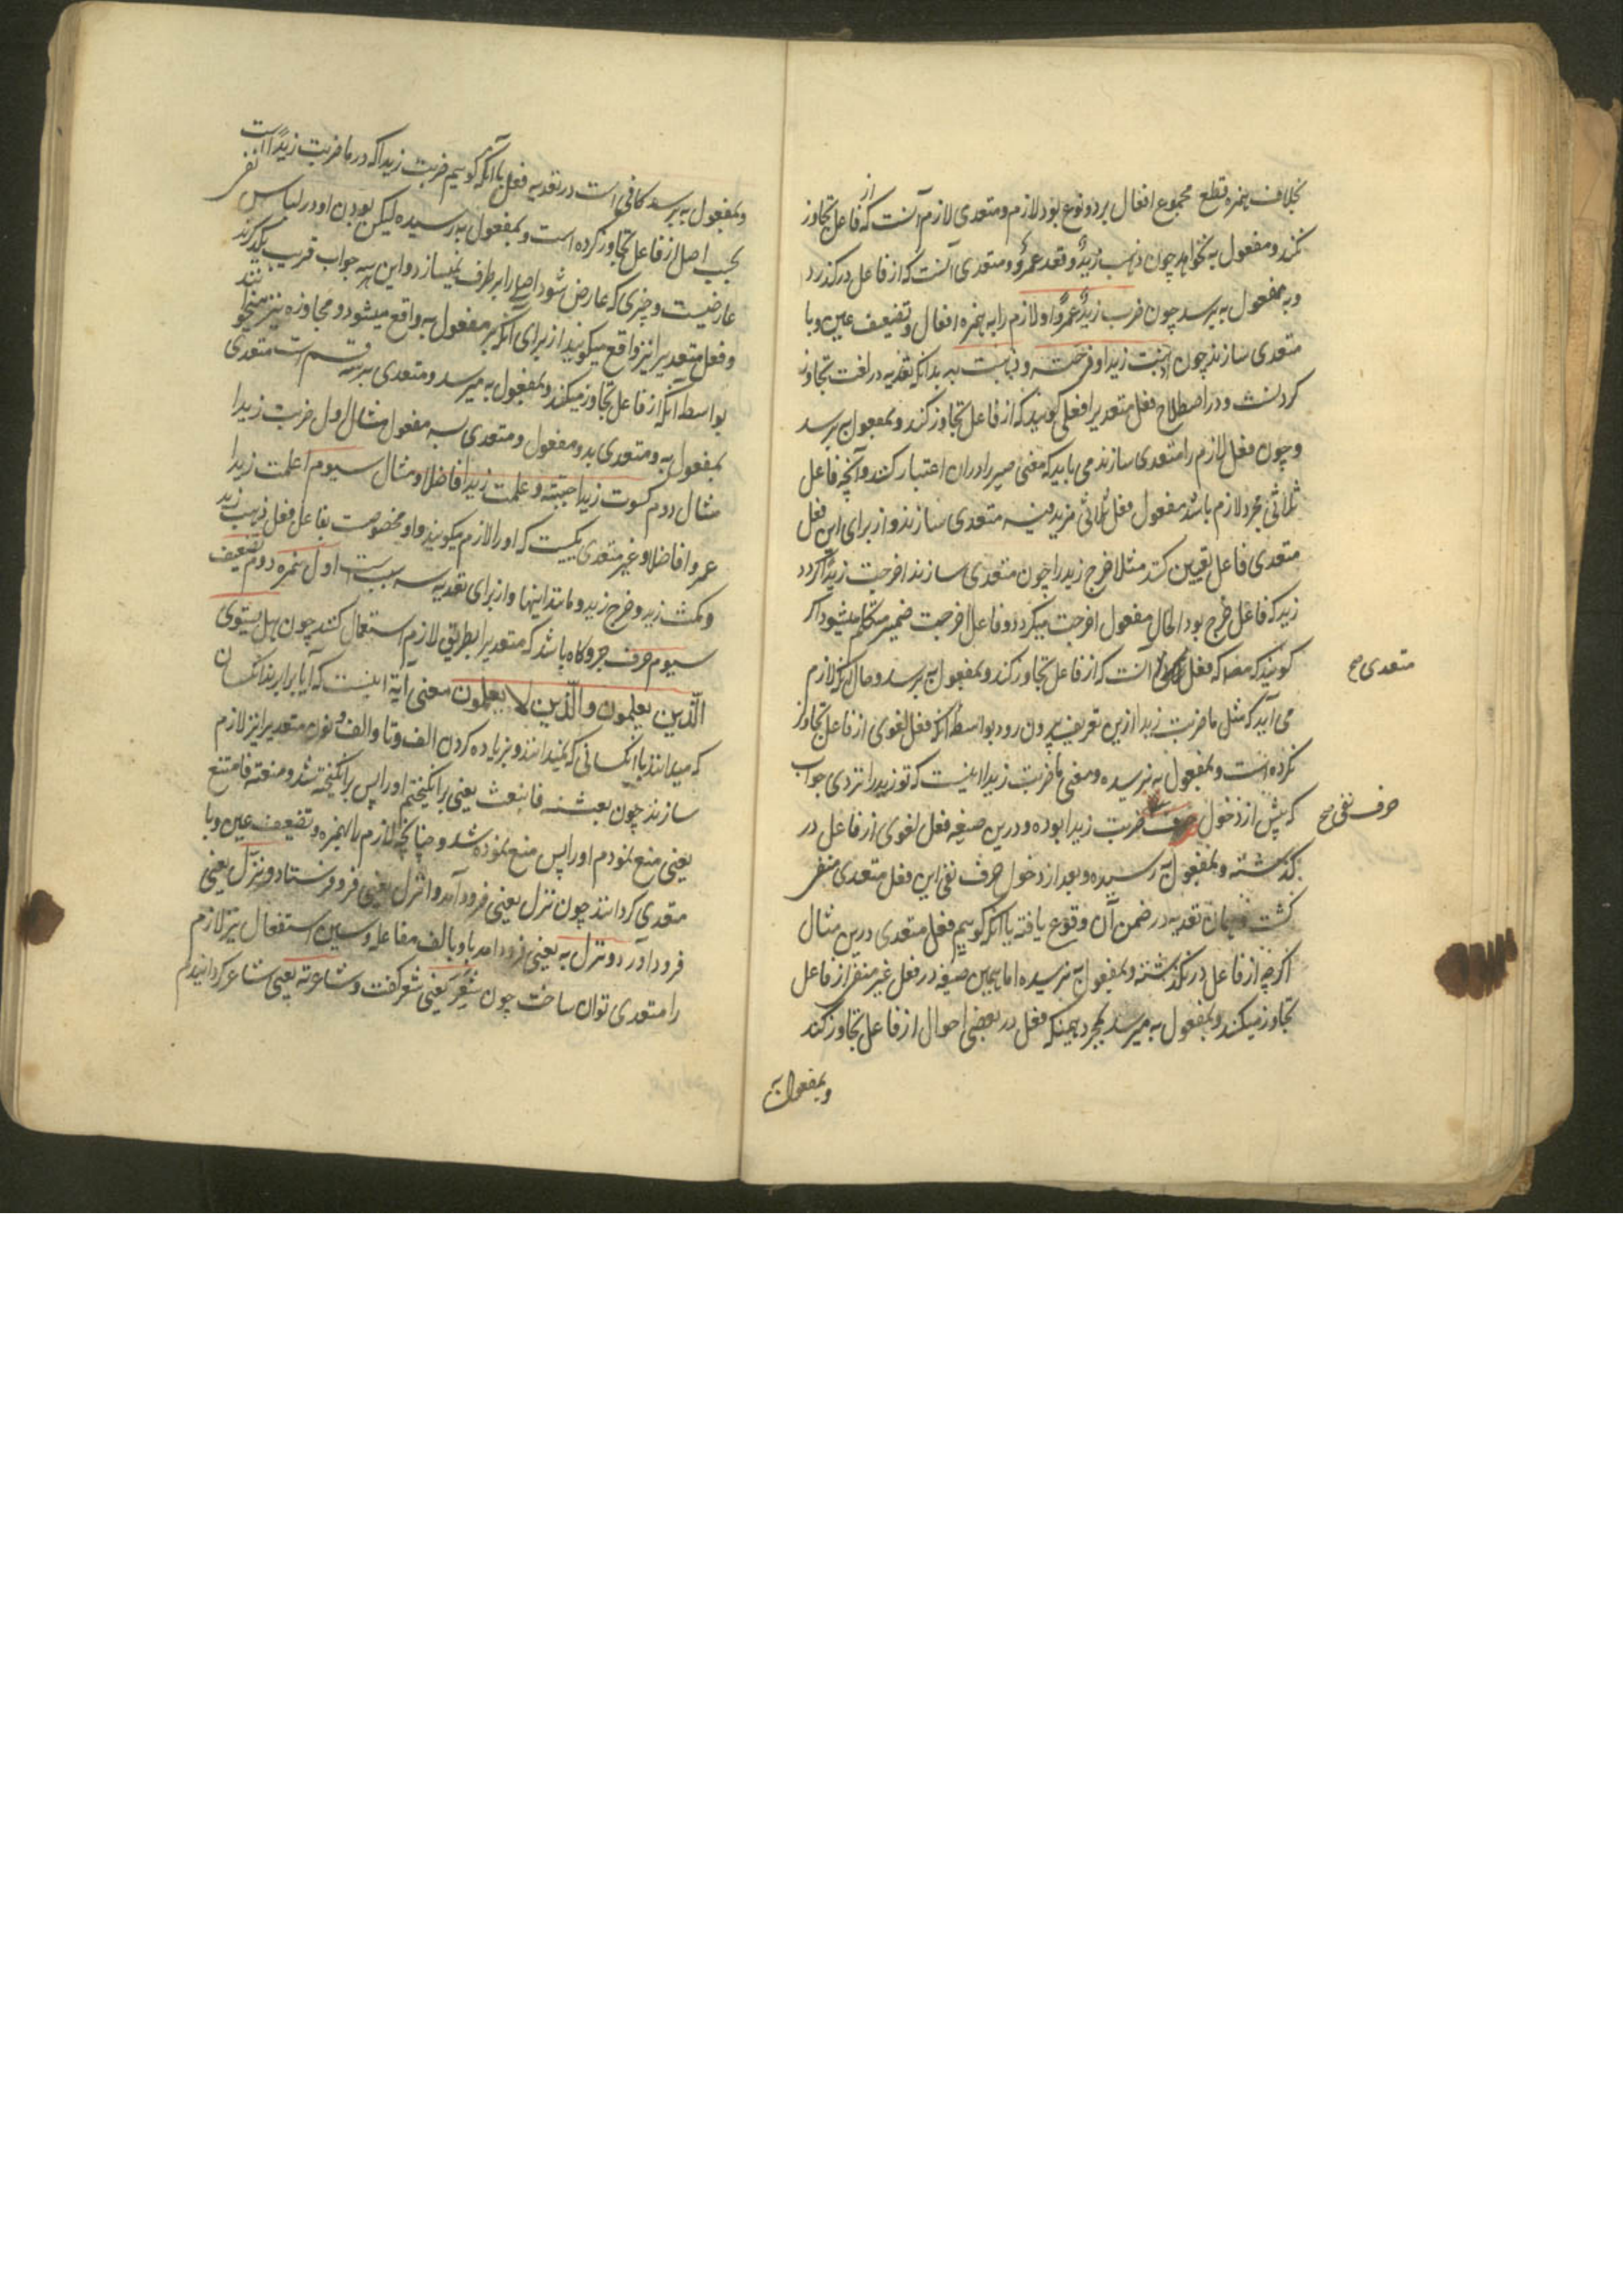 بخلاف همزه قطع مجموع افعال بر دو نوع بود لازم و متعدی لازم آنست که از فاعل تجاوز
نکند و مفعول به نخواهد چون ذهب زیدٌ و قعد عمرٌو و متعدی آنست که از فاعل درگذرد
و بمفعول به برسد چون ضرب زیدٌ عمرًوا و لازم را به همزه افعال و تضعیف عین و با
متعدی سازند چون اذهبت زیدا و فرحته و ذهبت به بدانکه تعدیه در لغت تجاوز
کردنست و در اصطلاح فعل متعدیرا فعلی کویند که از فاعل تجاوز کند و بمفعول به برسد
و چون فعل لازم را متعدی سازند می باید که معنی صیر را دران اعتبار کنند و آنچه فاعل
ثلاثی مجرد لازم باشد مفعول فعل ثلاثی مزید فیه متعدی سازند و از برای این فعل
متعدی فاعل تعیین کنند مثلا خرج زید را چون متعدی سازند اخرجت زیدًا کردد
زید که فاعل خرج بود الحال مفعول اخرجت میکردد و فاعل اخرجت ضمیر متکلم میشود اکر
کویند که فعل آنست که از فاعل تجاوز کند و بمفعول به برسد و حال آنکه لازم
متعدی صح
می آید که مثل ما ضربت زیدا ازین تعریف بیرون رود بواسطه آنکه فعل لغوی از فاعل تجاوز
نکرده است و بمفعول به نرسیده و معنی ما ضربت زیدا اینست که تو زید را نزدی جواب
که پیش از دخول ضربت زیدا بوده و درین صیغه فعل لغوی از فاعل در
حرف نفی صح
کذشته و بمفعول به رسیده و بعد از دخول حرف نفی این فعل متعدی منفی
کشت و بیان تعدیه در ضمن آن وقوع یافته یا آنکه کوییم فعل متعدی درین مثال
اکرچه از فاعل در نکذشته و بمفعول به نرسیده اما همین صیغه در فعل غیر منفی از فاعل
تجاوز میکند و بمفعول به میرسد بمجرد همینکه فعل در بعضی احوال از فاعل تجاوز کند
و بمفعول به
و بمفعول به برسد کافی است در تعدیه فعل یا آنکه کوییم ضربت زیدا که در ما ضربت زیدًا است
بحسب اصل از فاعل تجاوز کرده است و بمفعول به رسیده لیکن بودن او در لباس نفی
عارضیست و چیزی که عارض شود اصلی را بر طرف نمیسازد و این هر سه جواب قریب بیکدیکرند
و فعل متعدیرا نیز واقع میکویند از برای آنکه بر مفعول به واقع میشود و مجاوزه نیز میخوانند
بواسطه آنکه از فاعل تجاوز میکند و بمفعول به میرسد و متعدی بر سه قسم است متعدی
بمفعول به و متعدی بدو مفعول و متعدی بسه مفعول مثال اول ضربت زیدا
مثال دوم کسوت زیدا جبّته و علمت زیدا فاضلا و مثال سیوم اعلمت زیدا
عمروا فاضلا و غیر متعدی یکیست که او را لازم میکویند و او مخصوصست بفاعل فعل ذهب زید
و مکث زید و خرج زید و مانند اینها و از برای تعدیه سه سبب است اول همزه دوم تضعیف
سیوم حرف جر و کاه باشد که متعدیرا بطریق لازم استعمال کنند چون هل یستوی
الّذین یعلمون والّذین لا یعلمون معنی آیة اینست که آیا برابرند آنکسان
که میدانند با آنکسانی که نمیدانند و بزیاده کردن الف و تا و الف و نون متعدیرا نیز لازم
سازند چون بعثته فانبعث یعنی برانکیختم او را پس برانکیخته شد و منعته فامتنع
یعنی منع نمودم او را پس منع نموده شد و چنانچه لازم را بهمزه و تضعیف عین و با
متعدی کردانند چون نزل یعنی فرود آمد و انزل یعنی فرو فرستاد و نزّل یعنی
فرود آورد و نزل به یعنی فرود آمد با و بالف مفاعله و سین استفعال نیز لازم
را متعدی توان ساخت چون شعر یعنی شعر کفت و شاعرته یعنی شاعر کردانیدم